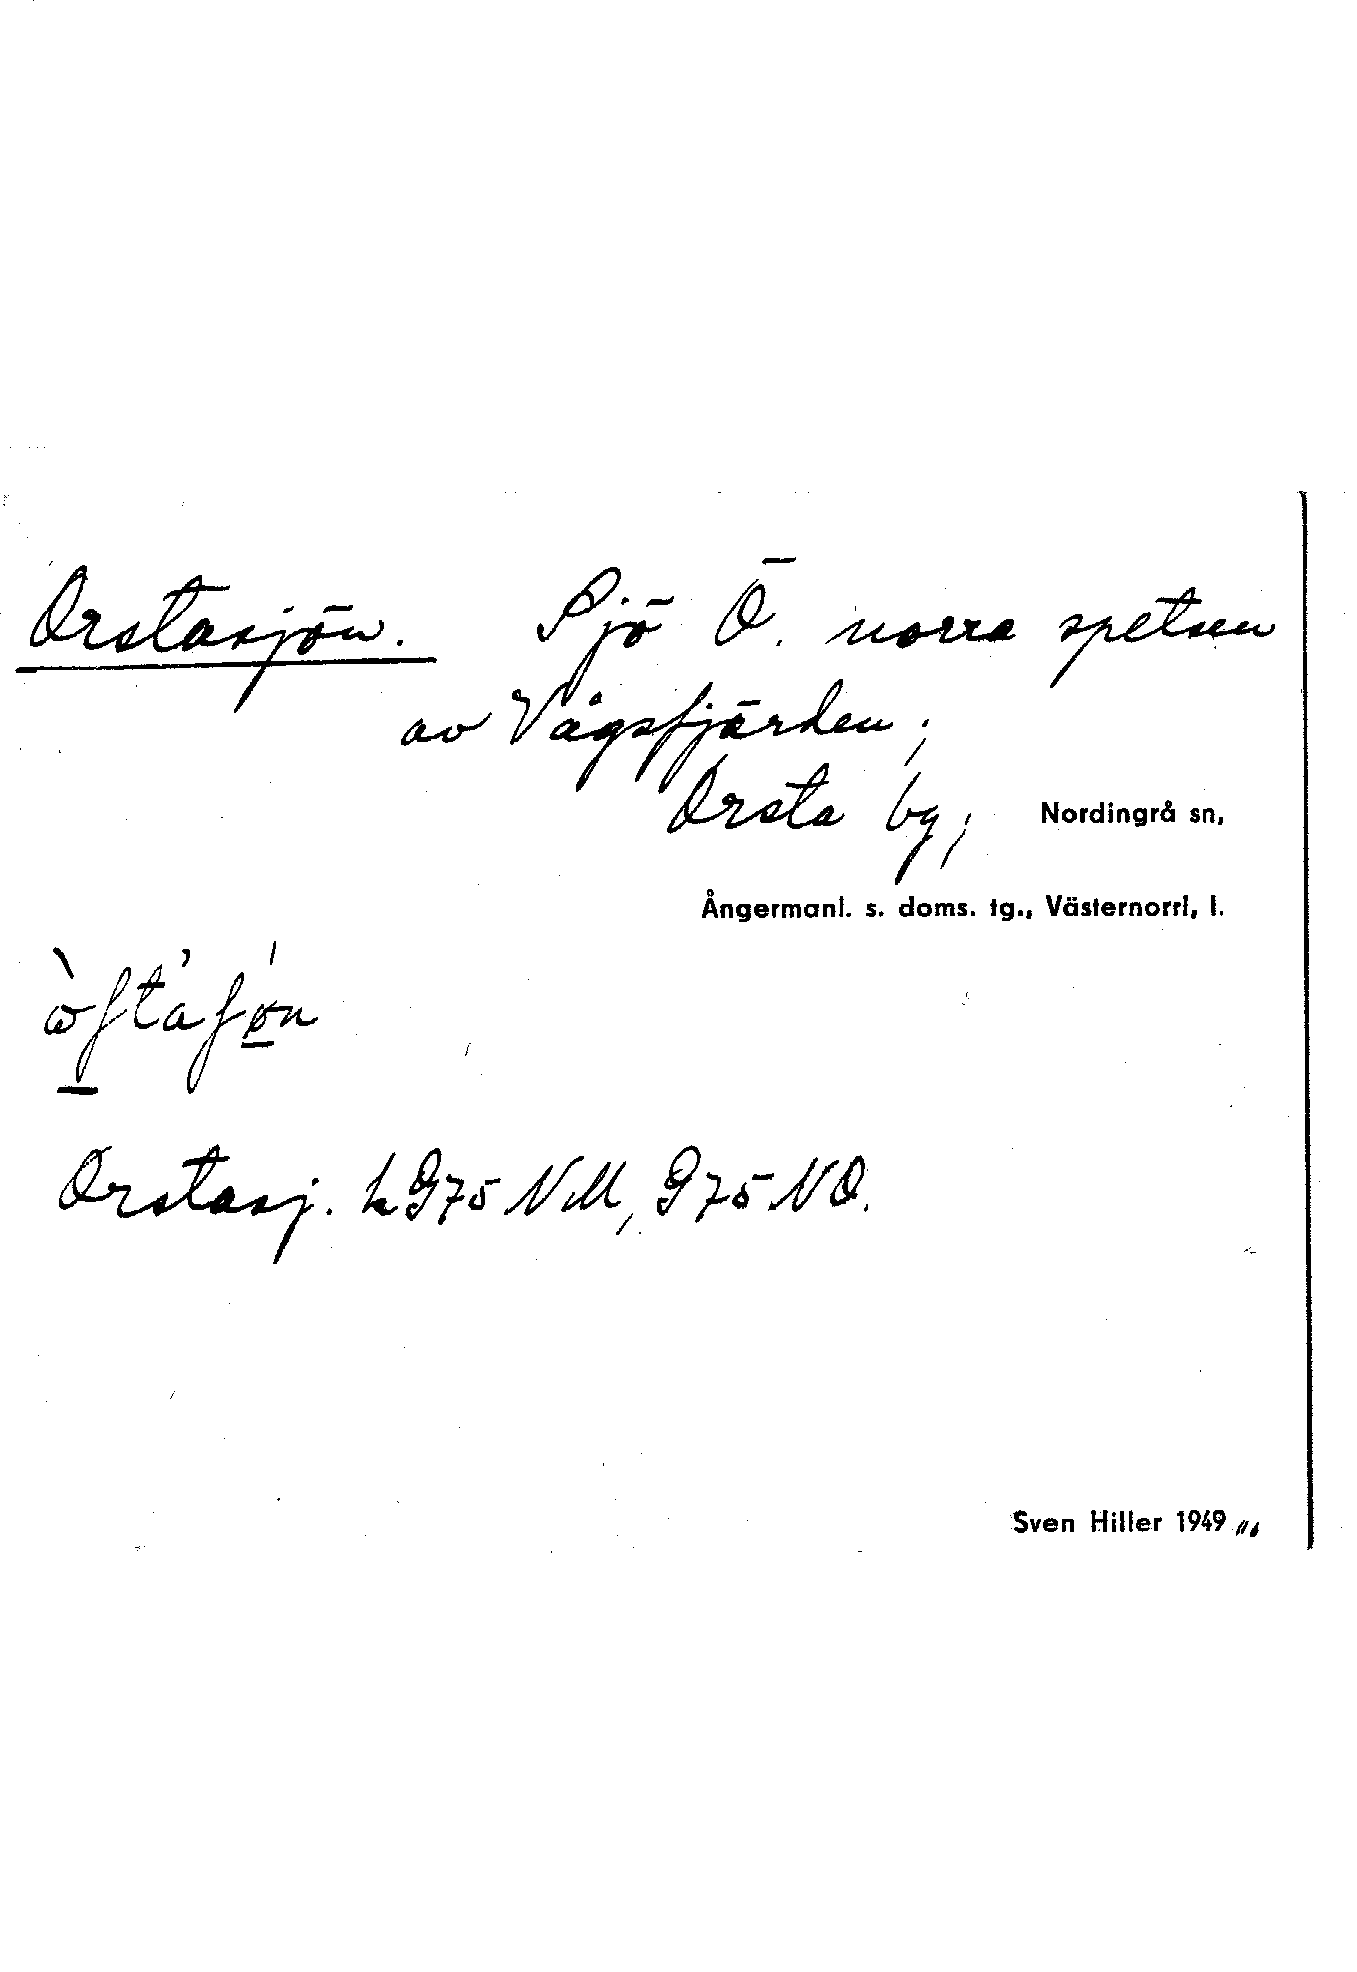 Orstasjön. Sjö Ö. norra spetsen
av Vågsfjärden;
Orsta by; Nordingrå sn,
Ångermanl. s. doms. tg., Västernorrl. l.
Orstasj. k G75 NM, G75 NO.
Sven Hiller 1949